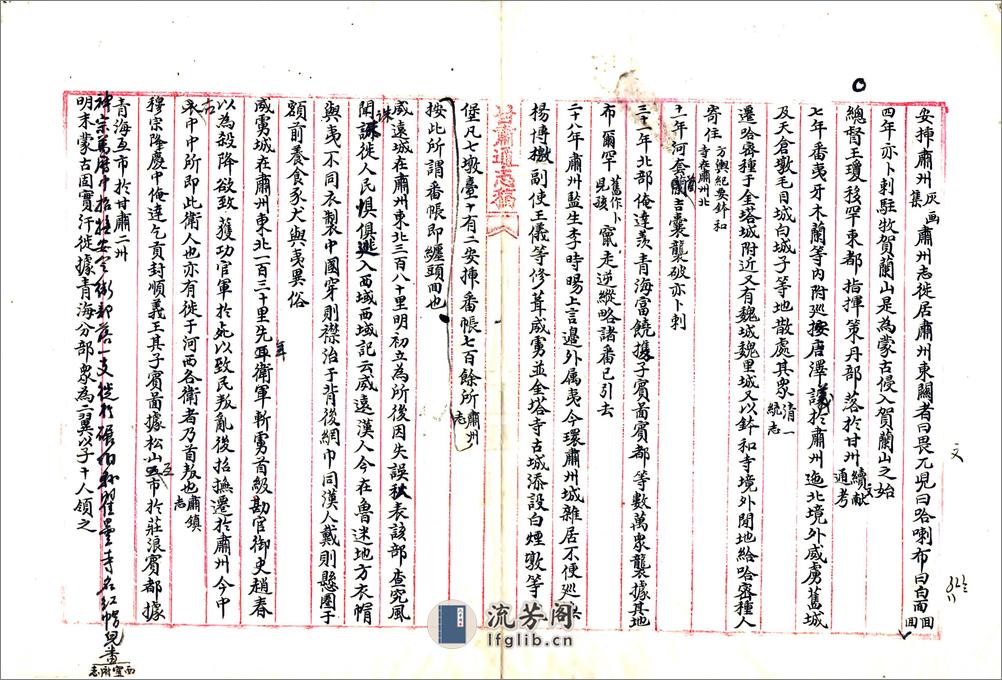 安揷肅州灰画集肅州志徙居肅州東關者曰畏兀兒曰哈喇布曰白面回回
四年亦卜剌駐牧賀蘭山是為蒙古侵入賀蘭山之始
總督王瓊移罕東都指揮策丹部落於甘州續文獻通考
七年番夷牙木蘭等內附巡按唐澤議於肅州迤北境外威虜舊城
及天倉墩毛目城白城子等地散處其衆清一統志
遷哈密種于金塔城附近又有魏城魏里城又以鉢和寺境外閒地給哈密種人
寄住方輿紀要鉢和寺在肅州北
十一年河套吉囊襲破亦卜剌
三十一年北部俺達羡青海富饒携子賓啚賓都等數萬衆襲據其地
布爾罕舊作卜兒孩竄走逆縱略諸番已引去
二十八年肅州監生李時暘上言邊外属夷今環肅州城雜居不便巡
楊博檄副使王儀等修葺威虜並金塔寺古城添設白煙墩等
甘肅通志稿
堡凡七墩臺十有二安揷番帳七百餘所肅州志
按此所謂番帳即纏頭回也
威遠城在肅州東北三百八十里明初立為所後因失誤秋表該部查究風
聞誅徙人民惧俱逃入西域西域記云威遠漢人今在魯迷地方衣帽
與夷不同衣製中國穿則襟治于背後網巾同漢人戴則懸圈于
額前養食豕犬與夷異俗
威虜城在肅州東北一百三十里先年衛軍斬虜首級勘官御史趙春
以為殺降欲致獲功官軍於死以致民叛亂後招撫遷於肅州今中
右中中所即此衛人也亦有徙于河西各衛者乃首叛也肅鎮志
穆宗隆慶中俺達乞貢封順義王其子賓啚據松山互市於莊浪賓都據
青海互市於甘肅二州
神宗萬歷中招撫安定衛部落一支徙於碾伯孫瞿曇寺名紅帽兒番西寧府志
明末蒙古固實汗徙據青海分部衆為二翼以子十人領之
又
流芳阁
lfglib.cn